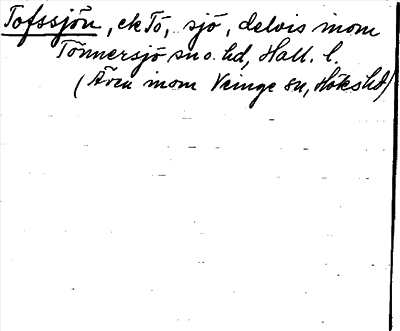 Tofssjön, ek Tö, sjö, delvis inom
Tönnersjö sn o. hd, Hall. l.
(Även inom Veinge sn, Höks hd)